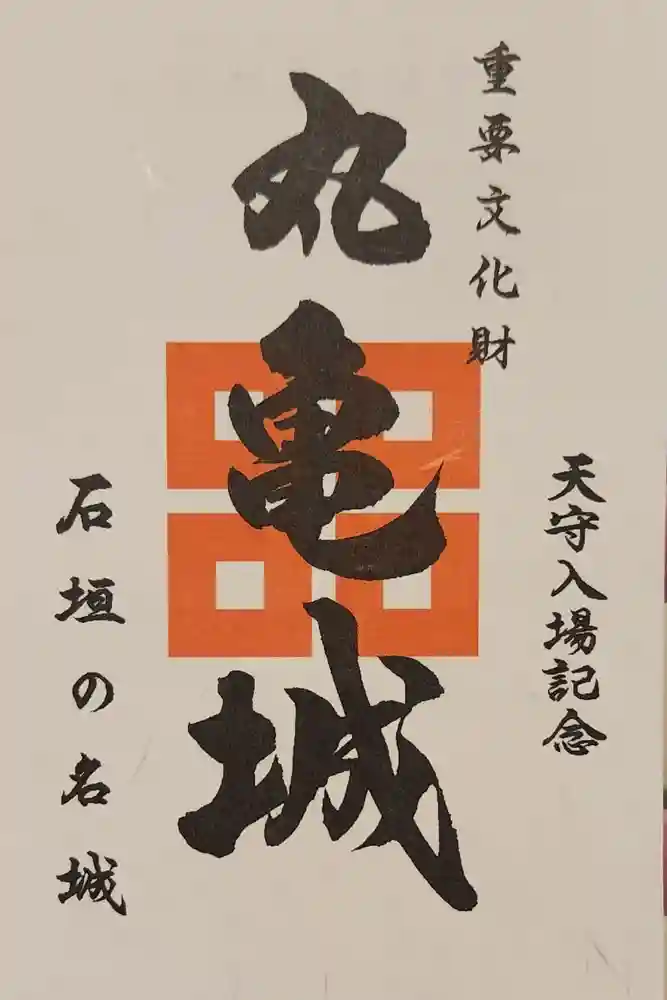 天守入場記念
重要文化財
丸亀城
石垣の名城